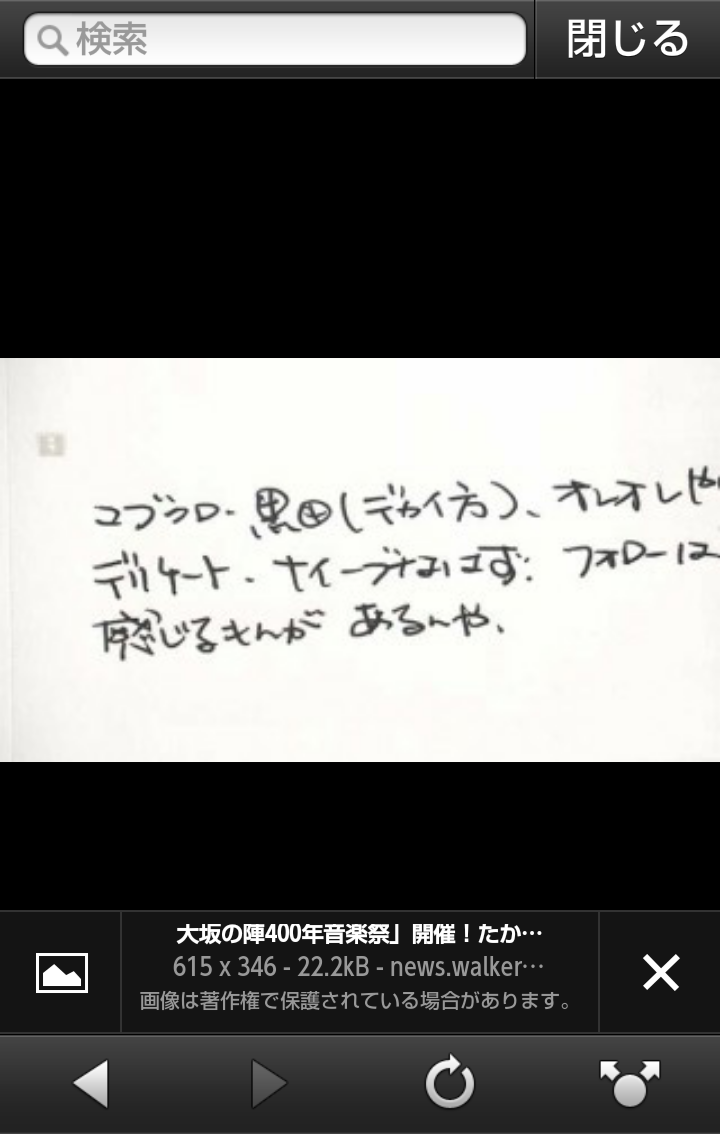 検索
閉じる
コブクロ・黒田(デカイ方)、オレオレ
デリケート、ナイーブなはず。フォローは
感じるもんが あるんや、
大坂の陣400年音楽祭」開催!たか…
615 x 346 - 22.2kB - news.walker…
画像は著作権で保護されている場合があります。